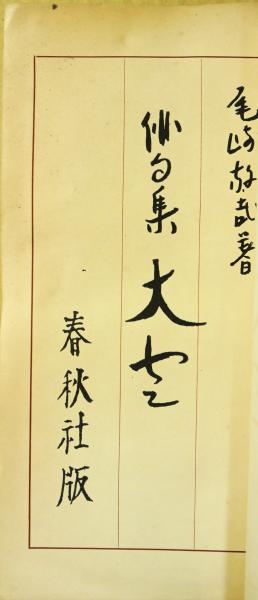 尾崎放哉著
俳句集 大空
春秋社版